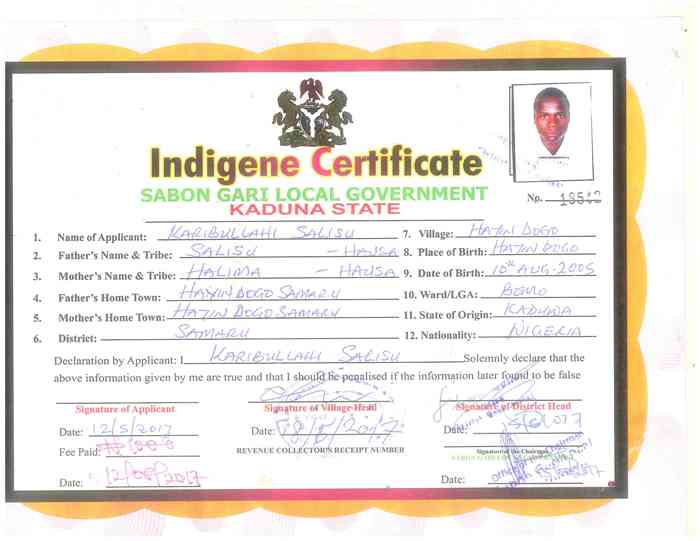 Indigene Certificate
SABON GARI LOCAL GOVERNMENT
KADUNA STATE
No.
1. Name of Applicant: KARIBULLAHI SALISU
7. Village: HAYIN DOGO
2. Father's Name & Tribe: SALISU - HAUSA
8. Place of Birth: HAYIN DOGO
3. Mother's Name & Tribe: HALIMA - HAUSA
9. Date of Birth: 10th AUG-2005
4. Father's Home Town: HAYIN DOGO SAMARU
10. Ward/LGA: BOMO
5. Mother's Home Town: HAYIN DOGO SAMARU
11. State of Origin: KADUNA
6. District: SAMARU
12. Nationality: NIGERIA
Declaration by Applicant: I KARIBULLAHI SALISU Solemnly declare that the
above information given by me are true and that I should be penalised if the information later found to be false
Signature of Applicant
Signature of Village Head
Signature of District Head
Date: 12/5/2017
Date:
Date:
Fee Paid:
REVENUE COLLECTOR'S RECEIPT NUMBER
Signature of the Chairman
SABON GARI LOCAL GOVERNMENT
Date: 12/05/2017
Date: